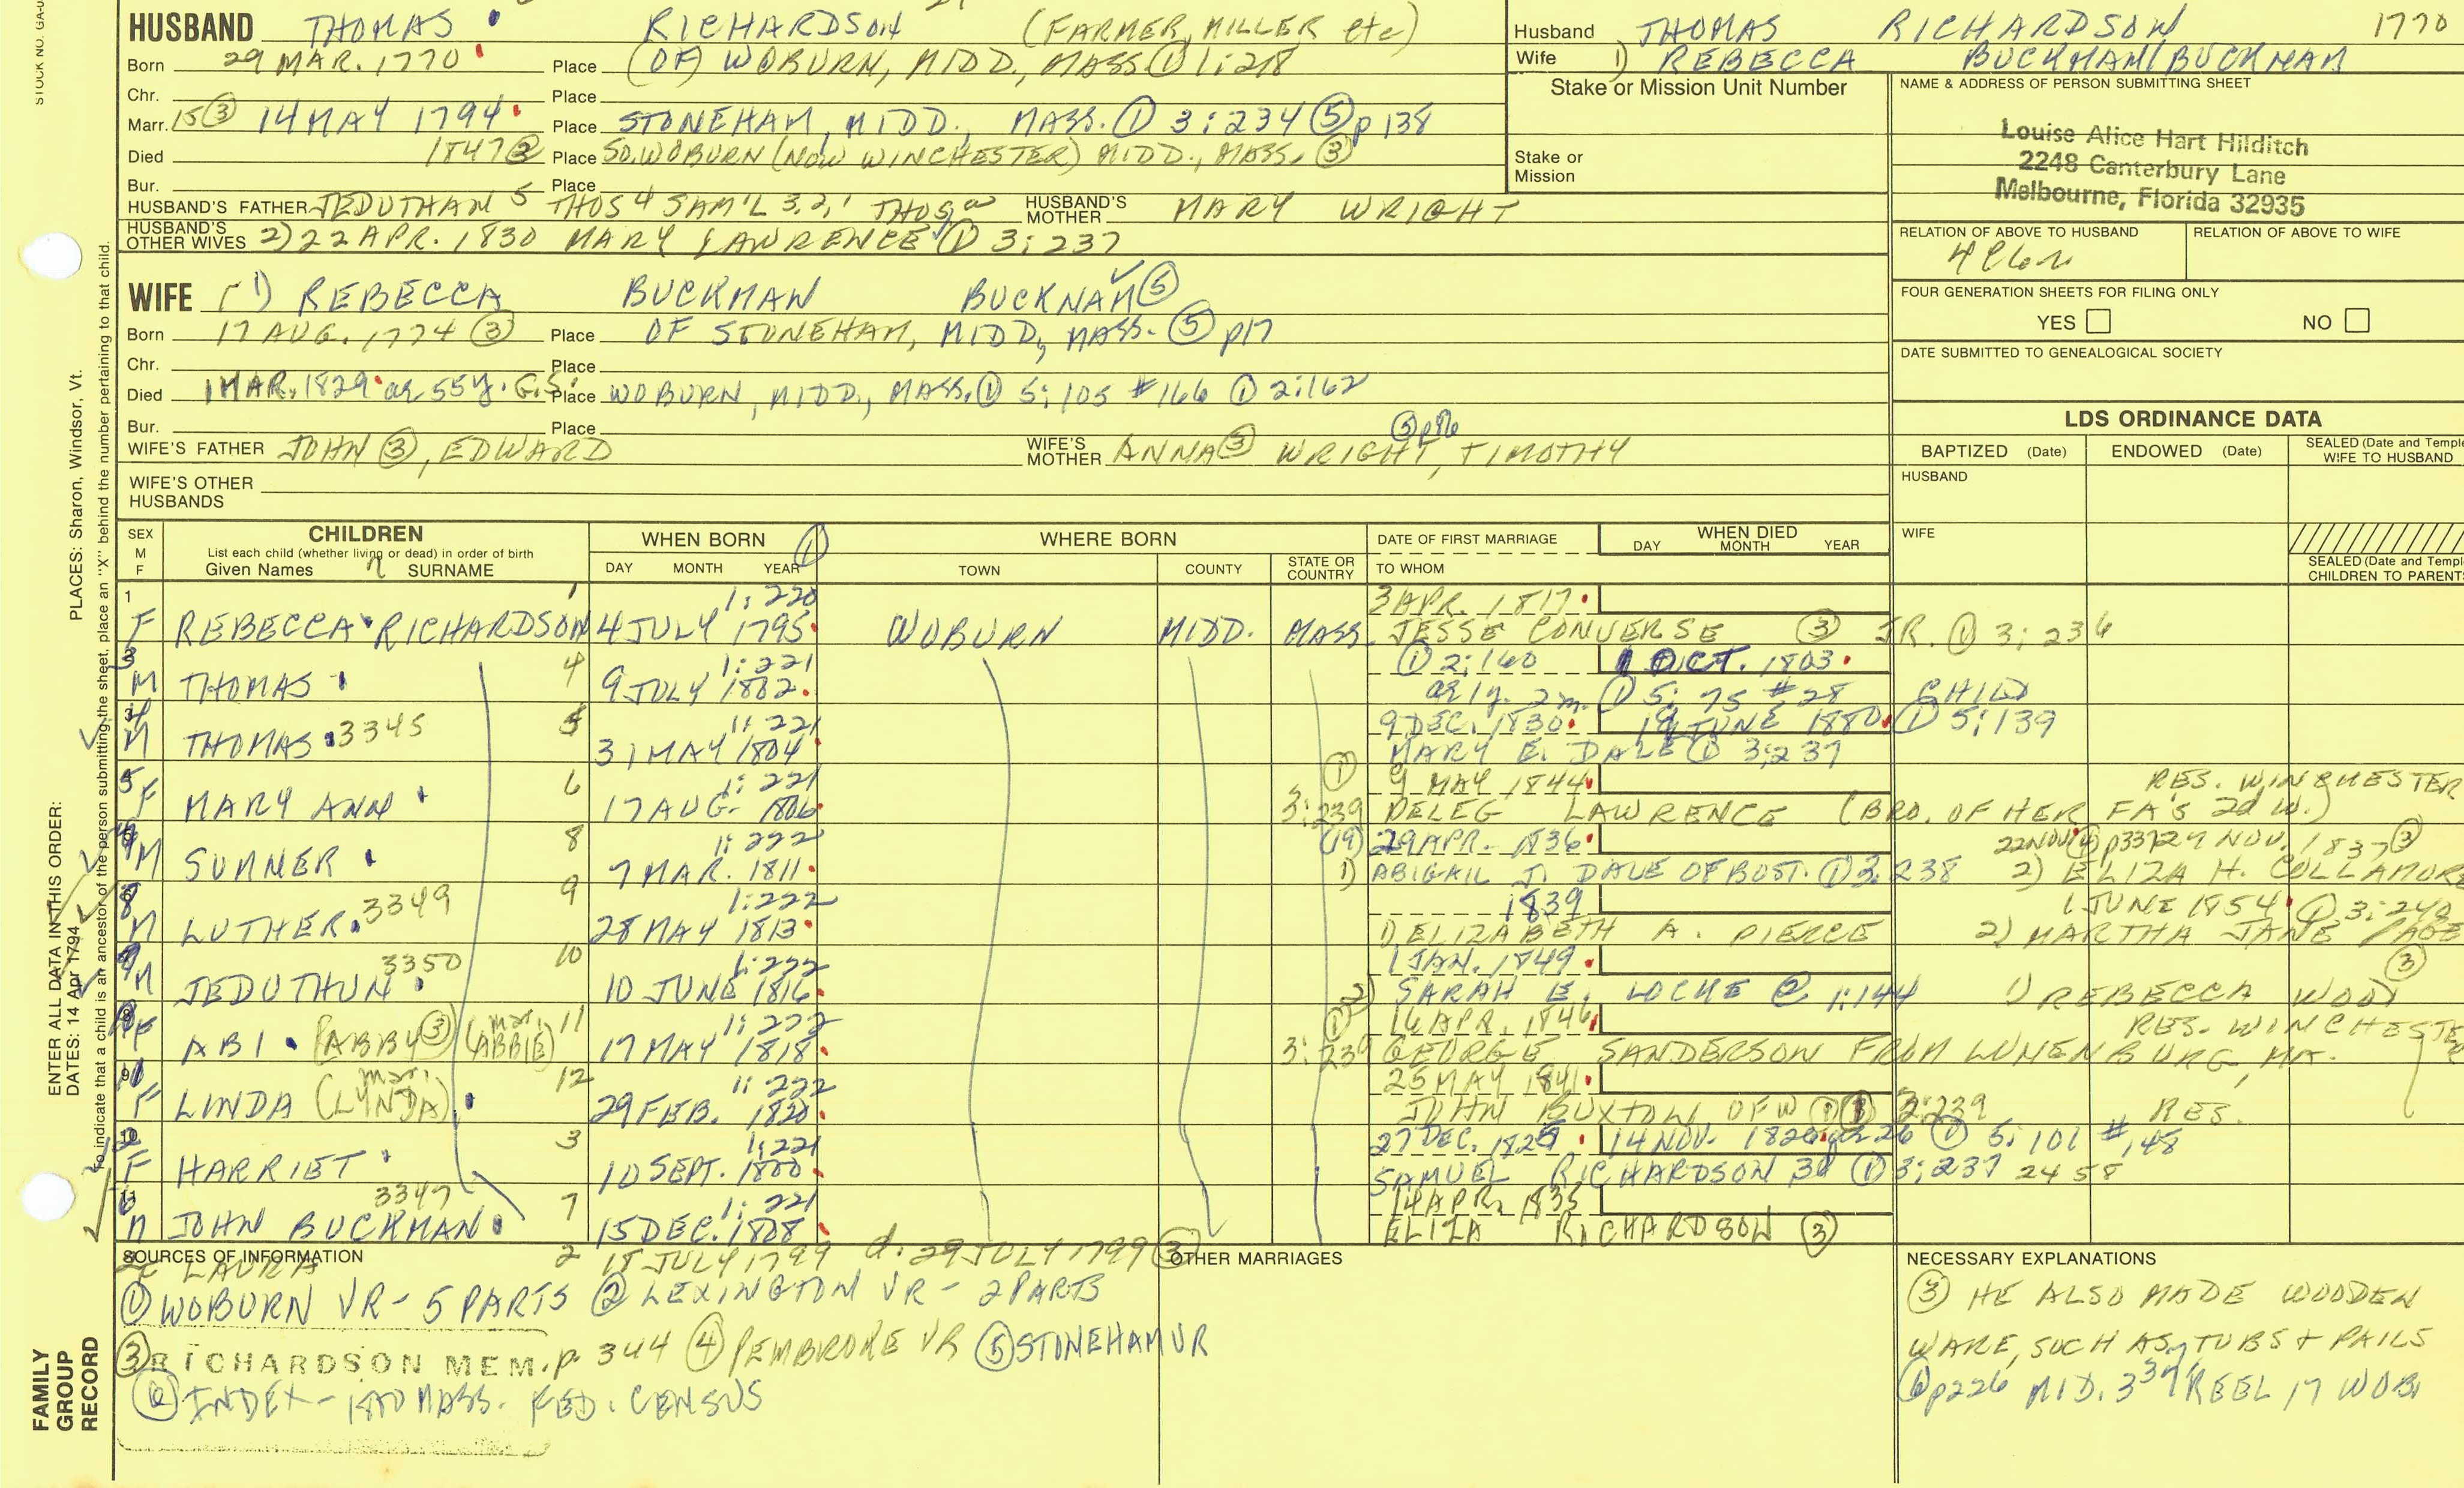 STOCK NO. GA-
HUSBAND THOMAS RICHARDSON (FARMER, MILLER etc)
Born 29 MAR. 1770 Place (OF) WOBURN, MIDD., MASS. ① 1:218
Chr. Place
Marr. 15③ 14 MAY 1794 Place STONEHAM, MIDD., MASS. ① 3:234 ⑤ p 138
Died 1847③ Place SO. WOBURN (NOW WINCHESTER) MIDD., MASS. ③
Bur. Place
HUSBAND'S FATHER JEDUTHAN 5 THOS 4 SAM'L 3,2,1 THOS HUSBAND'S MOTHER MARY WRIGHT
HUSBAND'S OTHER WIVES 2) 22 APR. 1830 MARY LAWRENCE ① 3:237
Husband THOMAS RICHARDSON 1770
Wife 1) REBECCA BUCKMAN/BUCKNAM
Stake or Mission Unit Number
Stake or Mission
NAME & ADDRESS OF PERSON SUBMITTING SHEET
Louise Alice Hart Hilditch
2248 Canterbury Lane
Melbourne, Florida 32935
RELATION OF ABOVE TO HUSBAND RELATION OF ABOVE TO WIFE
WIFE (1) REBECCA BUCKMAN BUCKNAM ⑤
Born 17 AUG. 1774 ③ Place OF STONEHAM, MIDD, MASS. ⑤ p17
Chr. Place
Died 1 MAR. 1829 ae 55y. G.S. Place WOBURN, MIDD., MASS. ① 5:105 #166 ① 2:162
Bur. Place
WIFE'S FATHER JOHN ③, EDWARD WIFE'S MOTHER ANNA ③ WRIGHT, TIMOTHY
WIFE'S OTHER HUSBANDS
FOUR GENERATION SHEETS FOR FILING ONLY
YES NO
DATE SUBMITTED TO GENEALOGICAL SOCIETY
LDS ORDINANCE DATA
BAPTIZED (Date) ENDOWED (Date) SEALED (Date and Temple
WIFE TO HUSBAND
HUSBAND
WIFE
SEALED (Date and Temple
CHILDREN TO PARENTS
SEX M F CHILDREN WHEN BORN ① WHERE BORN DATE OF FIRST MARRIAGE WHEN DIED
List each child (whether living or dead) in order of birth
Given Names SURNAME DAY MONTH YEAR TOWN COUNTY STATE OR COUNTRY TO WHOM DAY MONTH YEAR
1 1 1:220 3 APR. 1817
F REBECCA RICHARDSON 4 JULY 1795 WOBURN MIDD. MASS. JESSE CONVERSE ③ JR. ① 3:236
3 4 1:221 ① 2:160 1 OCT. 1803
M THOMAS 9 JULY 1802 ae 1y. 2m. ① 5:75 #28 CHILD
4 5 1:221 9 DEC. 1830 19 JUNE 1880 ① 5:139
M THOMAS 3345 31 MAY 1804 MARY E. DALE ① 3:237
5 6 1:221 ① 9 MAY 1844 RES. WINCHESTER
F MARY ANN 17 AUG. 1806 3:239 DELEG LAWRENCE (BRO. OF HER FA'S 2d W.)
8 1:222 (19) 29 APR. 1836 22 NOV 29 NOV. 1837 ③
M SUMNER 7 MAR. 1811 1) ABIGAIL J. DALE OF BOST. ① 3:238 2) ELIZA H. COLLAMORE
9 1:222 1839 1 JUNE 1854 ① 3:240
M LUTHER 3349 28 MAY 1813 1) ELIZABETH A. PIERCE 2) MARTHA JANE PAGE
3350 10 1:222 1 JAN. 1849 ③
M JEDUTHUN 10 JUNE 1816 2) SARAH E. LOCKE ② 1:144 1) REBECCA WOOD
11 1:222 ① 16 APR. 1846 RES. WINCHESTER
F ABI (ABBY ③) (mar. ABBIE) 17 MAY 1818 3:239 GEORGE SANDERSON FROM LUNENBURG, MA.
12 1:222 25 MAY 1841
F LINDA (mar. LYNDA) 29 FEB. 1820 JOHN BUXTON OF W ① 3:239 RES.
10 3 1:221 27 DEC. 1825 14 NOV. 1826 ae 26 ① 5:101 #148
F HARRIET 10 SEPT. 1800 SAMUEL RICHARDSON 3d ① 3:237 2458
3347 7 1:221 14 APR. 1835
M JOHN BUCKMAN 15 DEC. 1808 ELIZA RICHARDSON ③
2 F LAURA 2 18 JULY 1799 d. 29 JULY 1799 ③
SOURCES OF INFORMATION
① WOBURN VR - 5 PARTS ② LEXINGTON VR - 2 PARTS
③ RICHARDSON MEM. p. 344 ④ PEMBROKE VR ⑤ STONEHAM VR
⑥ INDEX - 1850 MASS. FED. CENSUS
OTHER MARRIAGES
NECESSARY EXPLANATIONS
③ HE ALSO MADE WOODEN
WARE, SUCH AS TUBS + PAILS
⑥ p226 MID. REEL 17 WOB
PLACES: Sharon, Windsor, Vt.
To indicate that a child is an ancestor of the person submitting the sheet, place an "X" behind the number pertaining to that child.
ENTER ALL DATA IN THIS ORDER:
DATES: 14 Apr 1794
FAMILY GROUP RECORD